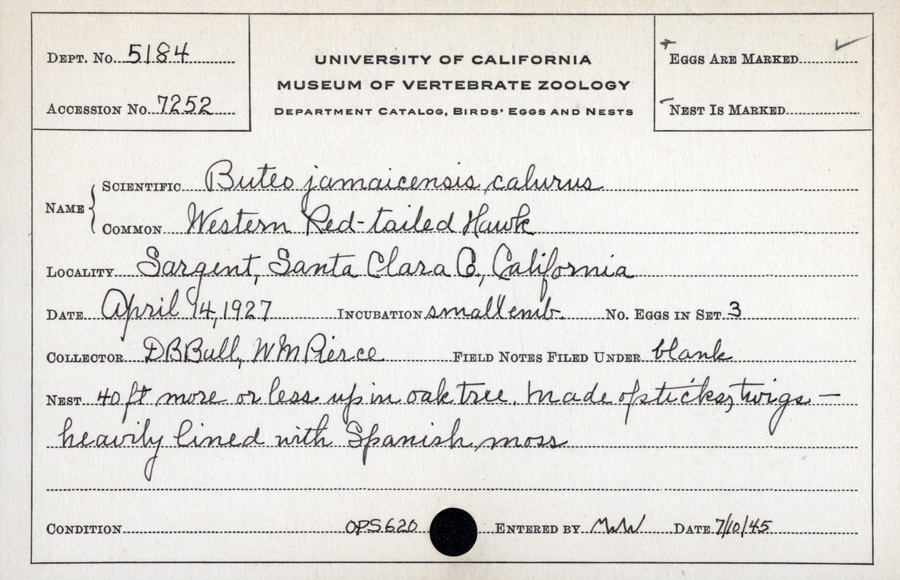 Dept. No. 5184
Accession No. 7252
University of California
Museum of Vertebrate Zoology
Department Catalog, Birds' Eggs and Nests
Eggs Are Marked ✓
Nest Is Marked
Name
Scientific Buteo jamaicensis calurus
Common Western Red-tailed Hawk
Locality Sargent, Santa Clara Co., California
Date April 14, 1927 Incubation small emb. No. Eggs in Set 3
Collector DBBull, WM Pierce Field Notes Filed Under blank
Nest 40 ft more or less up in oak tree. Made of sticks, twigs —
heavily lined with Spanish moss
Condition OPS620 Entered by MWW Date 7/10/45